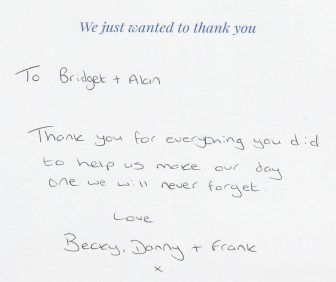 We just wanted to thank you
To Bridget + Alan
Thank you for everything you did
to help us make our day
one we will never forget.
Love
Becky, Danny + Frank
x.